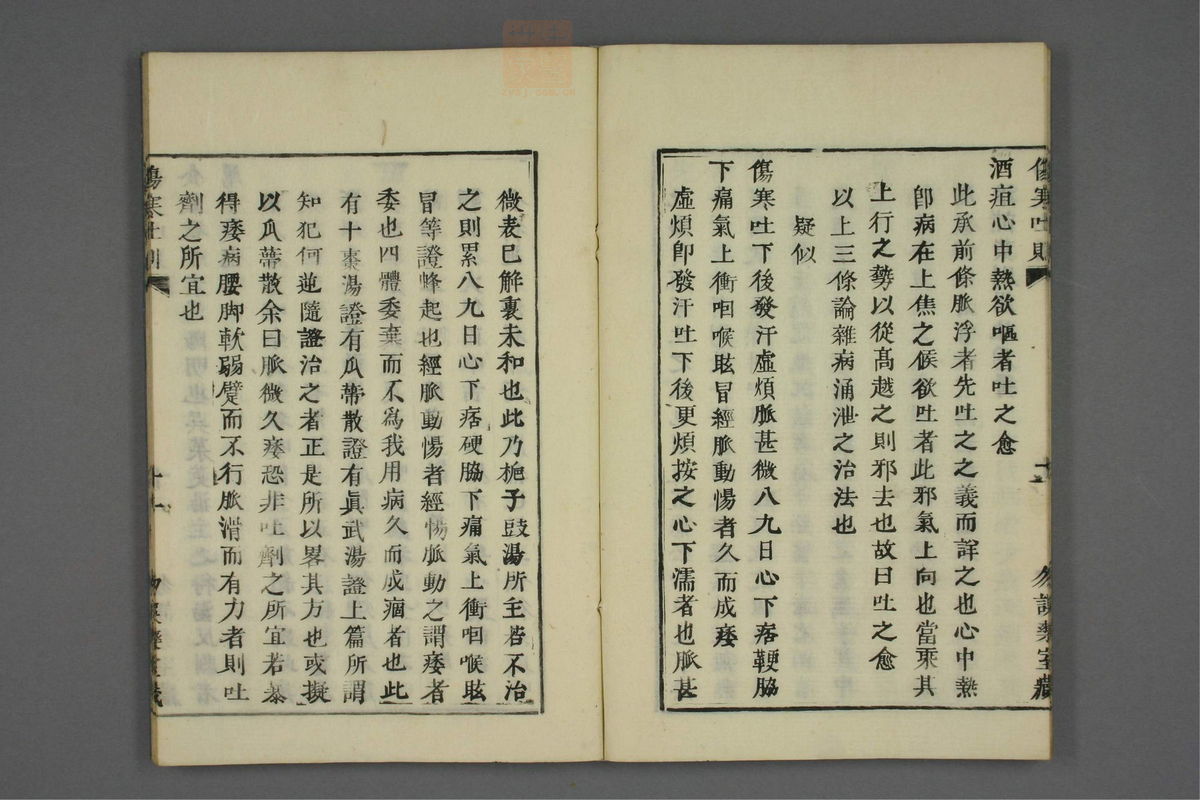 傷寒吐則
酒疸心中熱欲嘔者吐之愈
此承前條脈浮者先吐之之義而詳之也心中熱
卽病在上焦之候欲吐者此邪氣上向也當乘其
上行之勢以從高越之則邪去也故曰吐之愈
以上三條論雜病涌泄之治法也
疑似
傷寒吐下後發汗虛煩脈甚微八九日心下痞鞕脇
下痛氣上衝咽喉眩冒經脈動惕者久而成痿
虛煩卽發汗吐下後更煩按之心下濡者也脈甚
微表已解裏未和也此乃梔子豉湯所主若不治
之則累八九日心下痞硬脇下痛氣上衝咽喉眩
冒等證蜂起也經脈動惕者經惕脈動之謂痿者
委也四體委棄而不爲我用病久而成痼者也此
有十棗湯證有瓜蔕散證有眞武湯證上篇所謂
知犯何逆隨證治之者正是所以畧其方也或擬
以瓜蔕散余曰脈微久痿恐非吐劑之所宜若暴
得痿病腰脚軟弱躄而不行脈滑而有力者則吐
劑之所宜也